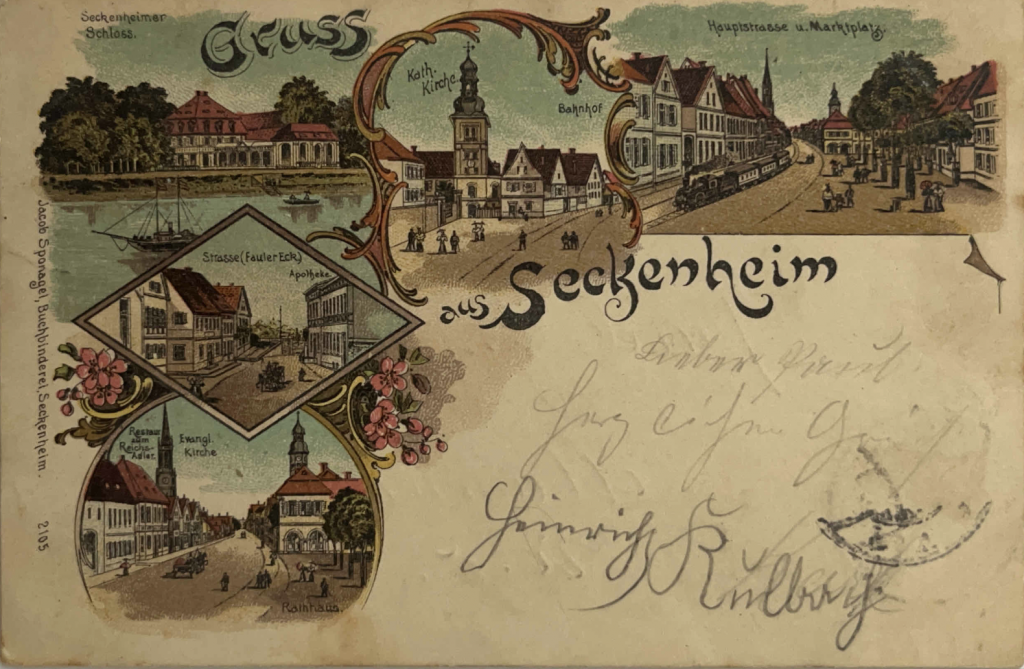 Seckenheimer
Schloss.
Gruss
Kath.
Kirche.
Bahnhof
Hauptstrasse u. Marktplatz.
aus Seckenheim
Strasse (Fauler Eck.)
Apotheke.
Restaur.
zum
Reichs-
Adler.
Evangl.
Kirche
Rathhaus.
Jacob Sponagel, Buchbinderei, Seckenheim.
2105
Lieber Paul.
Herzlichen
Heinrich